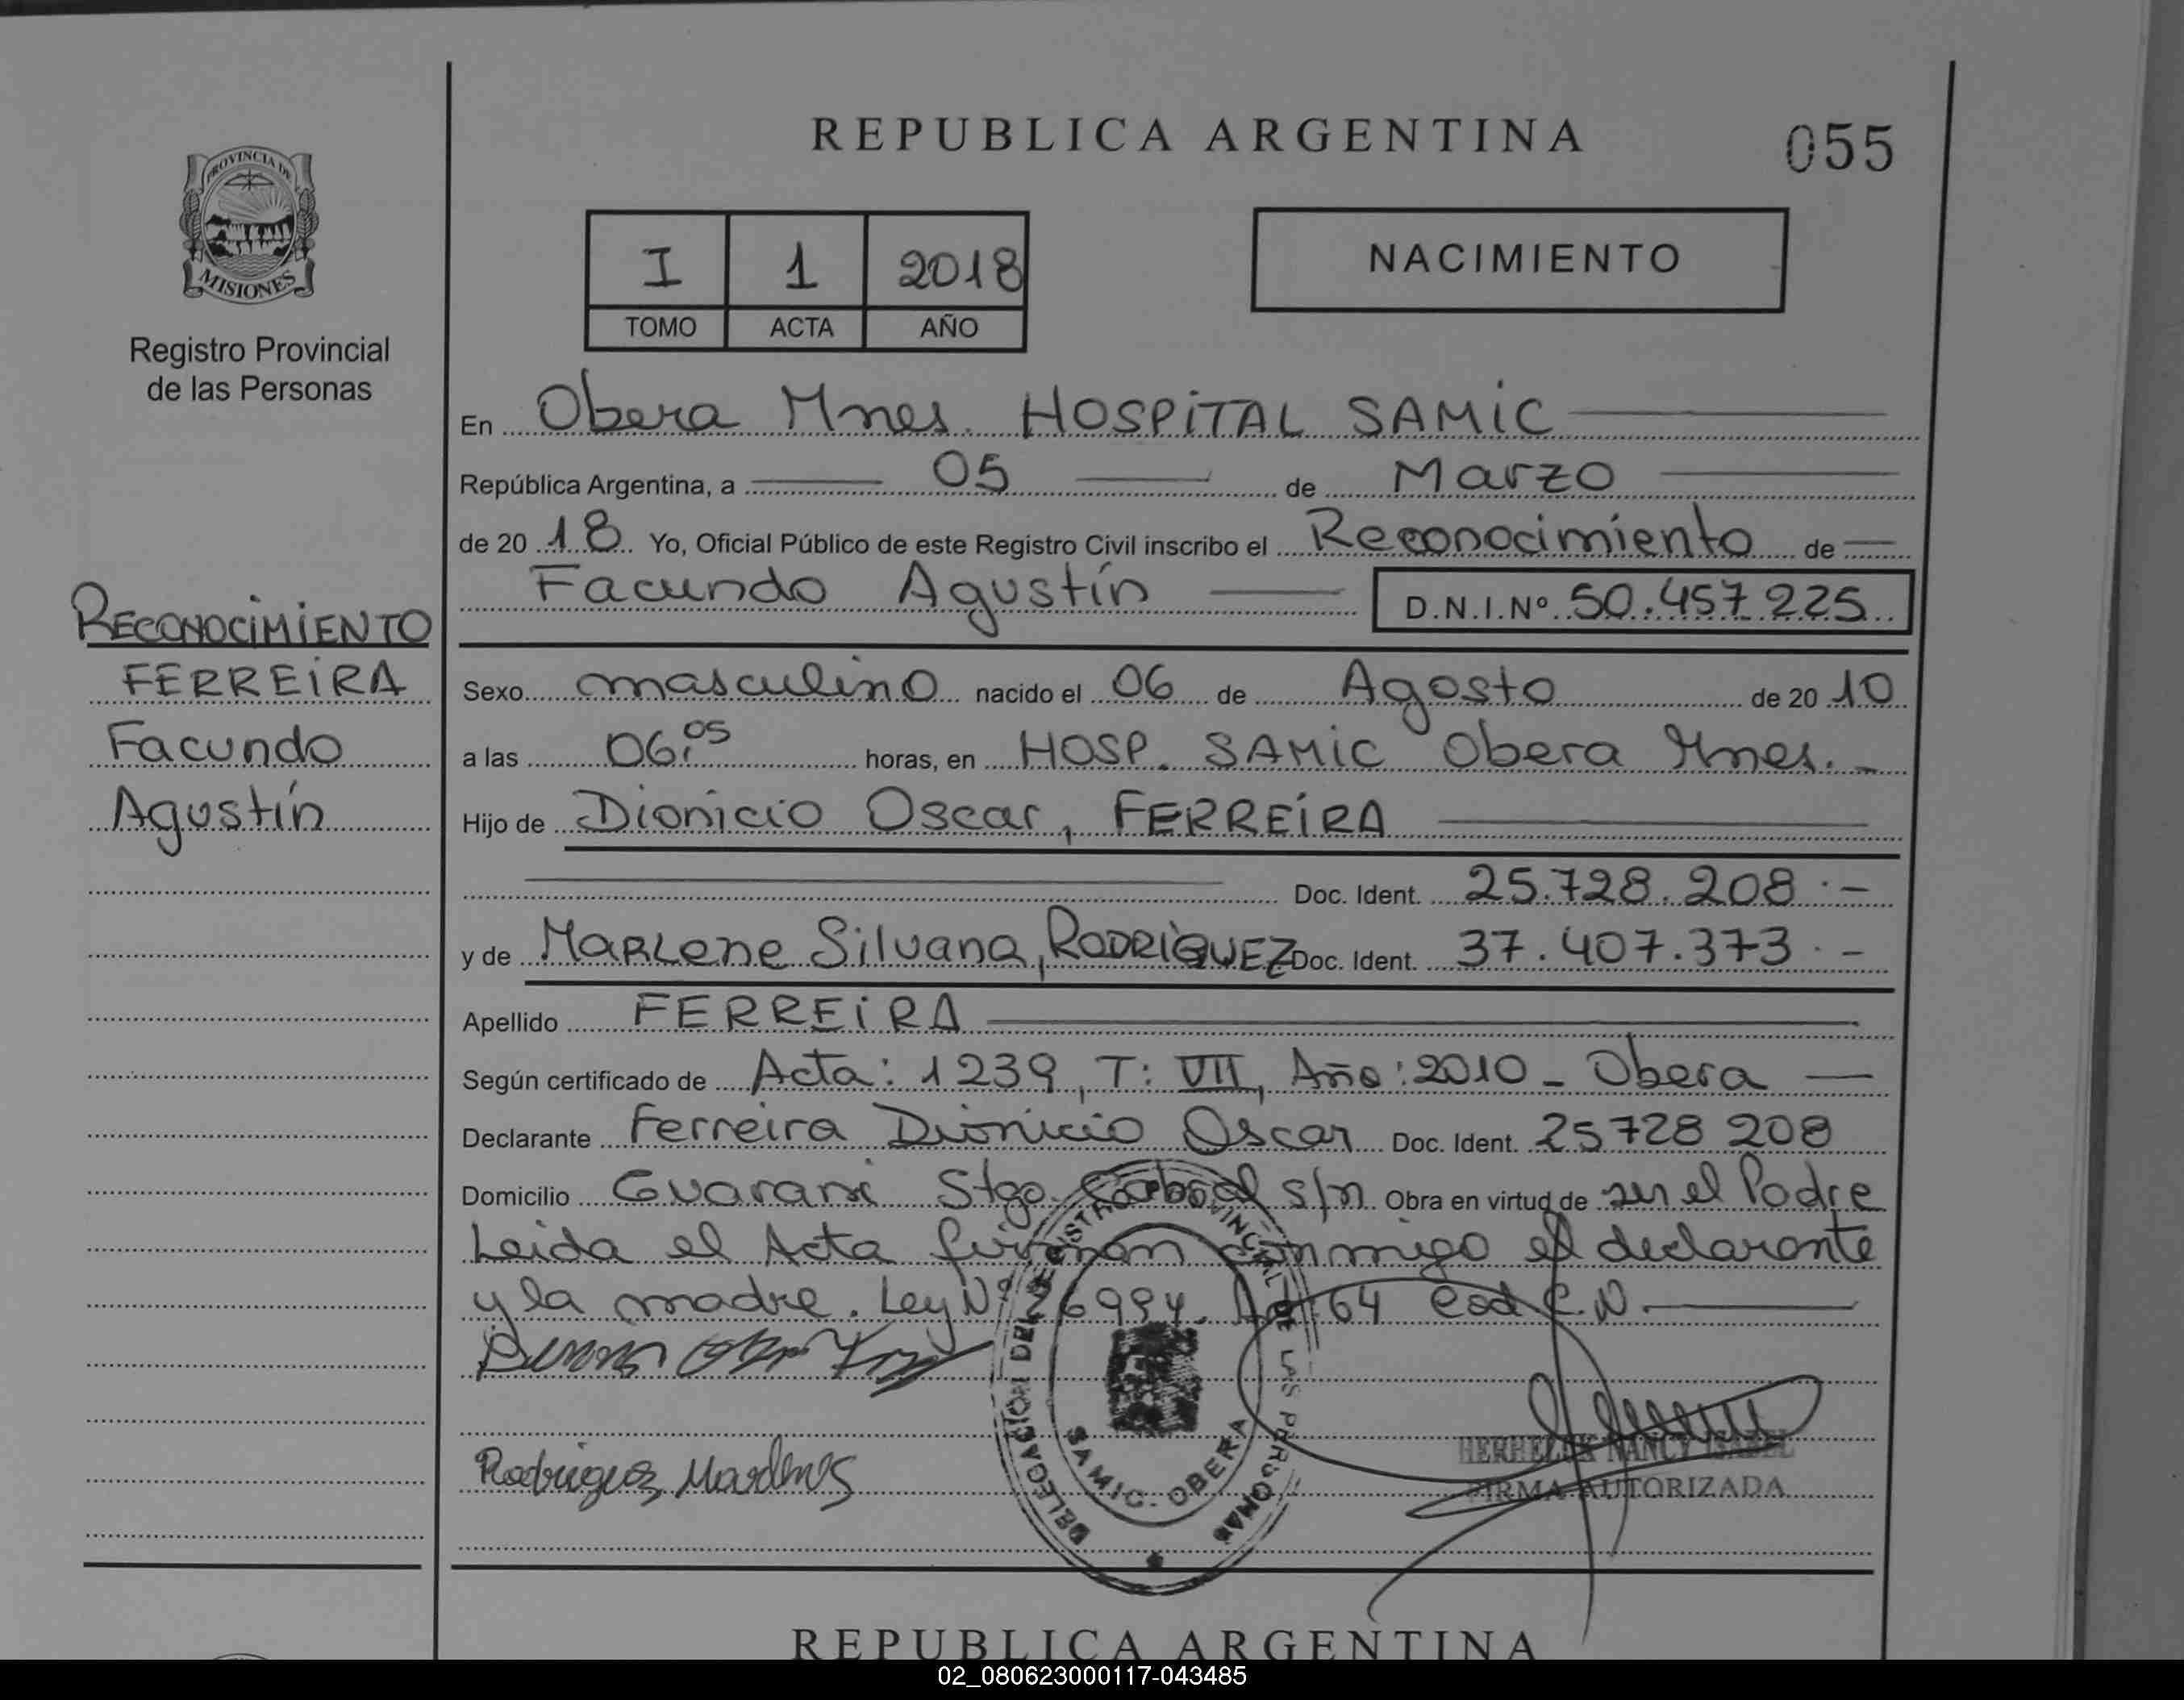 REPUBLICA ARGENTINA
055
PROVINCIA DE
MISIONES
Registro Provincial
de las Personas
I 1 2018
TOMO ACTA AÑO
NACIMIENTO
En Obera Mnes. HOSPITAL SAMIC
República Argentina, a 05 de Marzo
de 20 18 Yo, Oficial Público de este Registro Civil inscribo el Reconocimiento de
Facundo Agustín D.N.I.Nº 50.457.225
RECONOCIMIENTO
FERREIRA
Facundo
Agustín
Sexo masculino nacido el 06 de Agosto de 20 10
a las 06:05 horas, en HOSP. SAMIC Obera Mnes.-
Hijo de Dionicio Oscar, FERREIRA
Doc. Ident. 25.728.208.-
y de Marlene Silvana, RODRIGUEZ Doc. Ident. 37.407.373.-
Apellido FERREIRA
Según certificado de Acta: 1239, T: VII, Año: 2010 - Obera
Declarante Ferreira Dionicio Oscar Doc. Ident. 25728 208
Domicilio Guarani Stgo. Cabral s/n Obra en virtud de ser el Padre
Leida el Acta firman conmigo el declarante
y la madre. Ley Nº 26994. Art 64 Cod C.N.
DELEGACION DEL REGISTRO PROVINCIAL DE LAS PERSONAS
SAMIC - OBERA
Rodrigues Marlene
NANCY ISABEL
FIRMA AUTORIZADA
REPUBLICA ARGENTINA
02_080623000117-043485